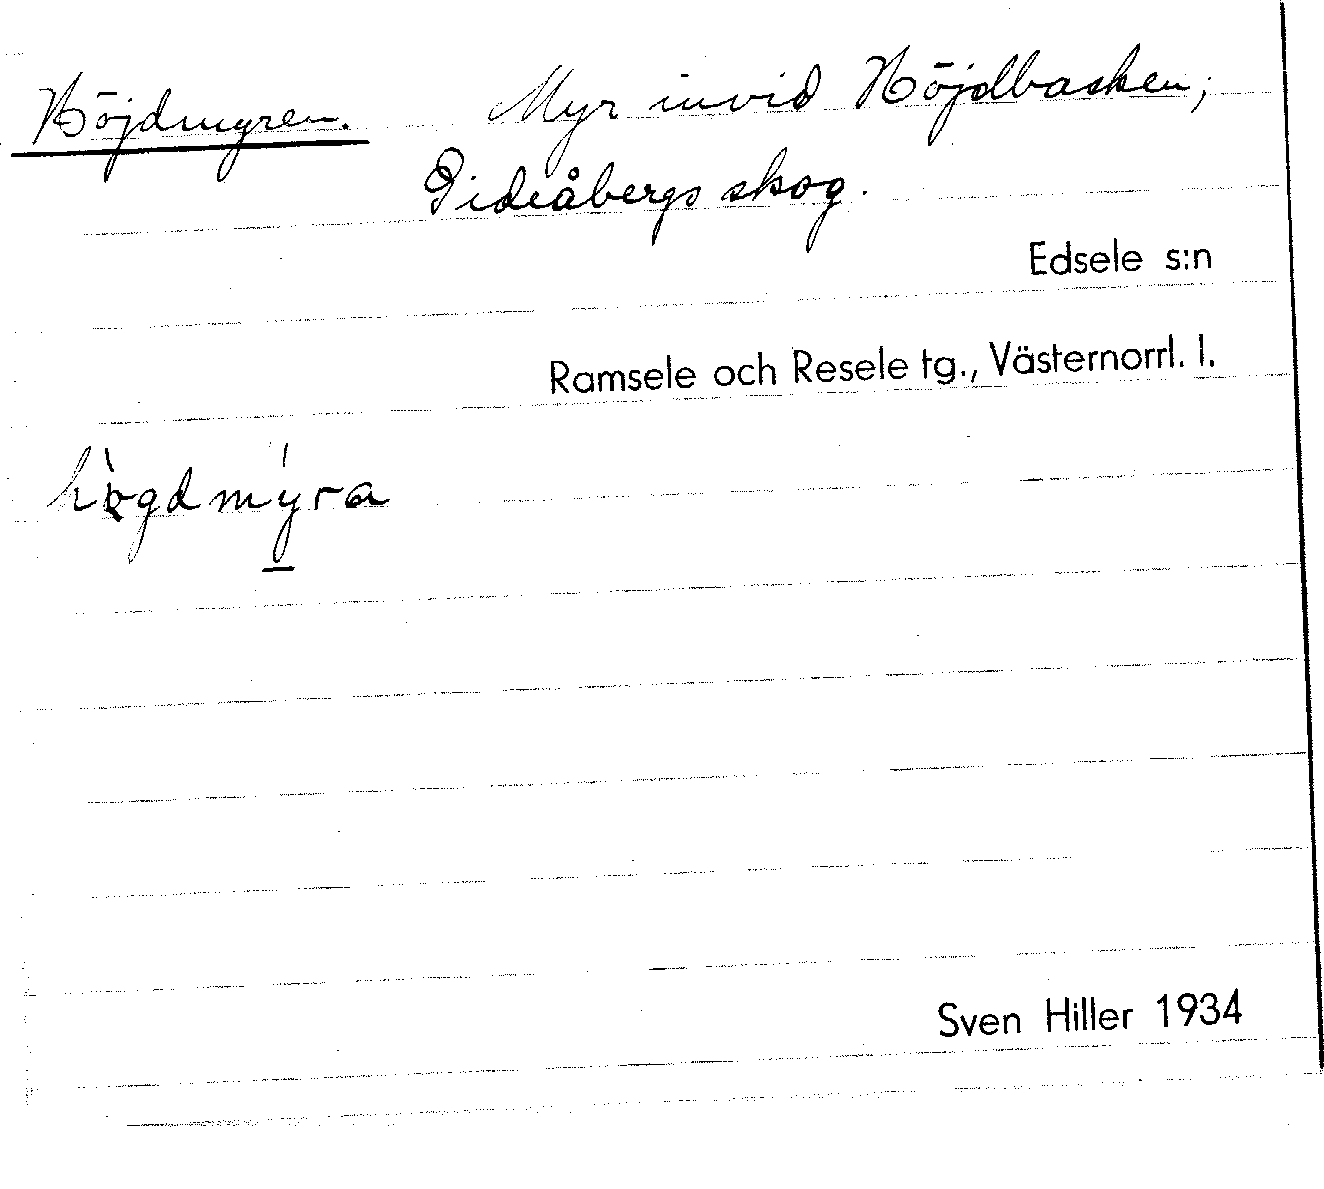 Höjdmyren. Myr invid Höjdbacken;
Gideåbergs skog.
Edsele s:n
Ramsele och Resele tg., Västernorrl. l.
Sven Hiller 1934